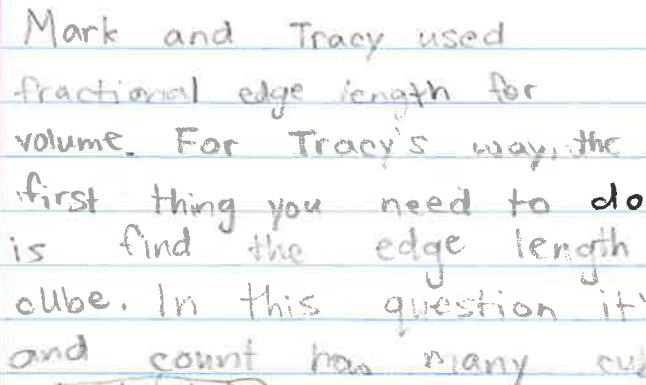 Mark and Tracy used
fractional edge length for
volume. For Tracy's way, the
first thing you need to do
is find the edge length
cube. In this question it'
and count how many cu